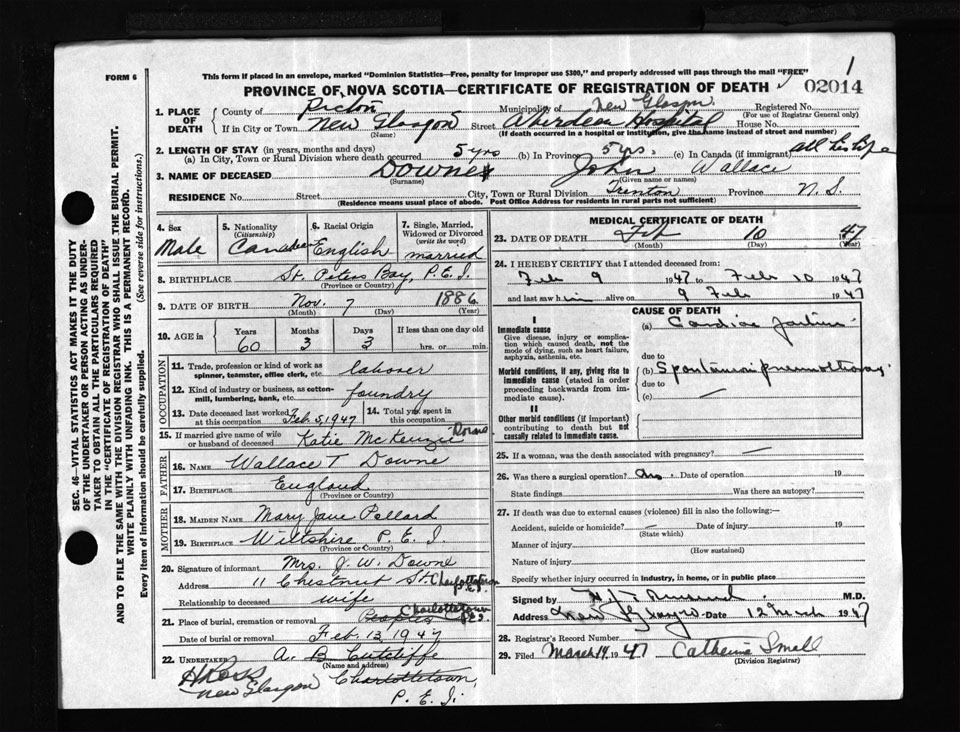 1
FORM 6
This form if placed in an envelope, marked "Dominion Statistics—Free, penalty for improper use $300," and properly addressed will pass through the mail "FREE"
PROVINCE OF NOVA SCOTIA—CERTIFICATE OF REGISTRATION OF DEATH
02014
1. PLACE OF DEATH
County of Pictou Municipality of New Glasgow Registered No.
(For use of Registrar General only)
If in City or Town New Glasgow Street Aberdeen Hospital House No.
(Name) (If death occurred in a hospital or institution, give the name instead of street and number)
2. LENGTH OF STAY (in years, months and days)
(a) In City, Town or Rural Division where death occurred 5 yrs (b) In Province 5 yrs. (c) In Canada (if immigrant) all his life
3. NAME OF DECEASED Downe John Wallace
(Surname) (Given name or names)
RESIDENCE No. Street City, Town or Rural Division Trenton Province N. S.
(Residence means usual place of abode. Post Office Address for residents in rural parts not sufficient)
4. Sex
Male
5. Nationality
(Citizenship)
Canadian
6. Racial Origin
English
7. Single, Married, Widowed or Divorced
(write the word)
married
8. BIRTHPLACE St. Peters Bay, P.E.I.
(Province or Country)
9. DATE OF BIRTH Nov. 7 1886
(Month) (Day) (Year)
10. AGE in Years Months Days If less than one day old
60 3 3 hrs. or min.
OCCUPATION
11. Trade, profession or kind of work as spinner, teamster, office clerk, etc. labourer
12. Kind of industry or business, as cotton-mill, lumbering, bank, etc. foundry
13. Date deceased last worked at this occupation Feb 5, 1947
14. Total yrs spent in this occupation
15. If married give name of wife or husband of deceased Katie McKenzie Downe
FATHER
16. NAME Wallace T Downe
17. BIRTHPLACE England
(Province or Country)
MOTHER
18. MAIDEN NAME Mary Jane Pollard
19. BIRTHPLACE Wiltshire P.E.I.
(Province or Country)
20. Signature of informant Mrs. J. W. Downe
Address 11 Chestnut St. Charlottetown P.E.I.
Relationship to deceased wife
21. Place of burial, cremation or removal Peoples Charlottetown P.E.I.
Date of burial or removal Feb. 13, 1947
22. UNDERTAKER A. B Cutcliffe
(Name and address)
H Ross
New Glasgow
Charlottetown
P. E. I.
MEDICAL CERTIFICATE OF DEATH
23. DATE OF DEATH Feb 10 47
(Month) (Day) (Year)
24. I HEREBY CERTIFY that I attended deceased from:
Feb 9 1947 to Feb 10 1947
and last saw him alive on 9 Feb 1947
CAUSE OF DEATH
I
Immediate cause
Give disease, injury or complication which caused death, not the mode of dying, such as heart failure, asphyxia, asthenia, etc.
(a) Cardiac failure
due to
Morbid conditions, if any, giving rise to immediate cause (stated in order proceeding backwards from immediate cause).
(b) Spontaneous pneumothorax
due to
(c)
II
Other morbid conditions (if important) contributing to death but not causally related to immediate cause.
25. If a woman, was the death associated with pregnancy? —
26. Was there a surgical operation? no. Date of operation 19
State findings Was there an autopsy?
27. If death was due to external causes (violence) fill in also the following:—
Accident, suicide or homicide? — Date of injury 19
(State which)
Manner of injury
(How sustained)
Nature of injury
Specify whether injury occurred in industry, in home, or in public place
Signed by M.D.
Address New Glasgow Date 12 March 1947
28. Registrar's Record Number
29. Filed March 14 1947 Catherine Small
(Division Registrar)
SEC. 46—VITAL STATISTICS ACT MAKES IT THE DUTY
OF THE UNDERTAKER OR PERSON ACTING AS UNDER-
TAKER TO OBTAIN ALL THE PARTICULARS REQUIRED
IN THE "CERTIFICATE OF REGISTRATION OF DEATH"
AND TO FILE THE SAME WITH THE DIVISION REGISTRAR WHO SHALL ISSUE THE BURIAL PERMIT.
WRITE PLAINLY WITH UNFADING INK. THIS IS A PERMANENT RECORD.
Every item of information should be carefully supplied. (See reverse side for instructions.)